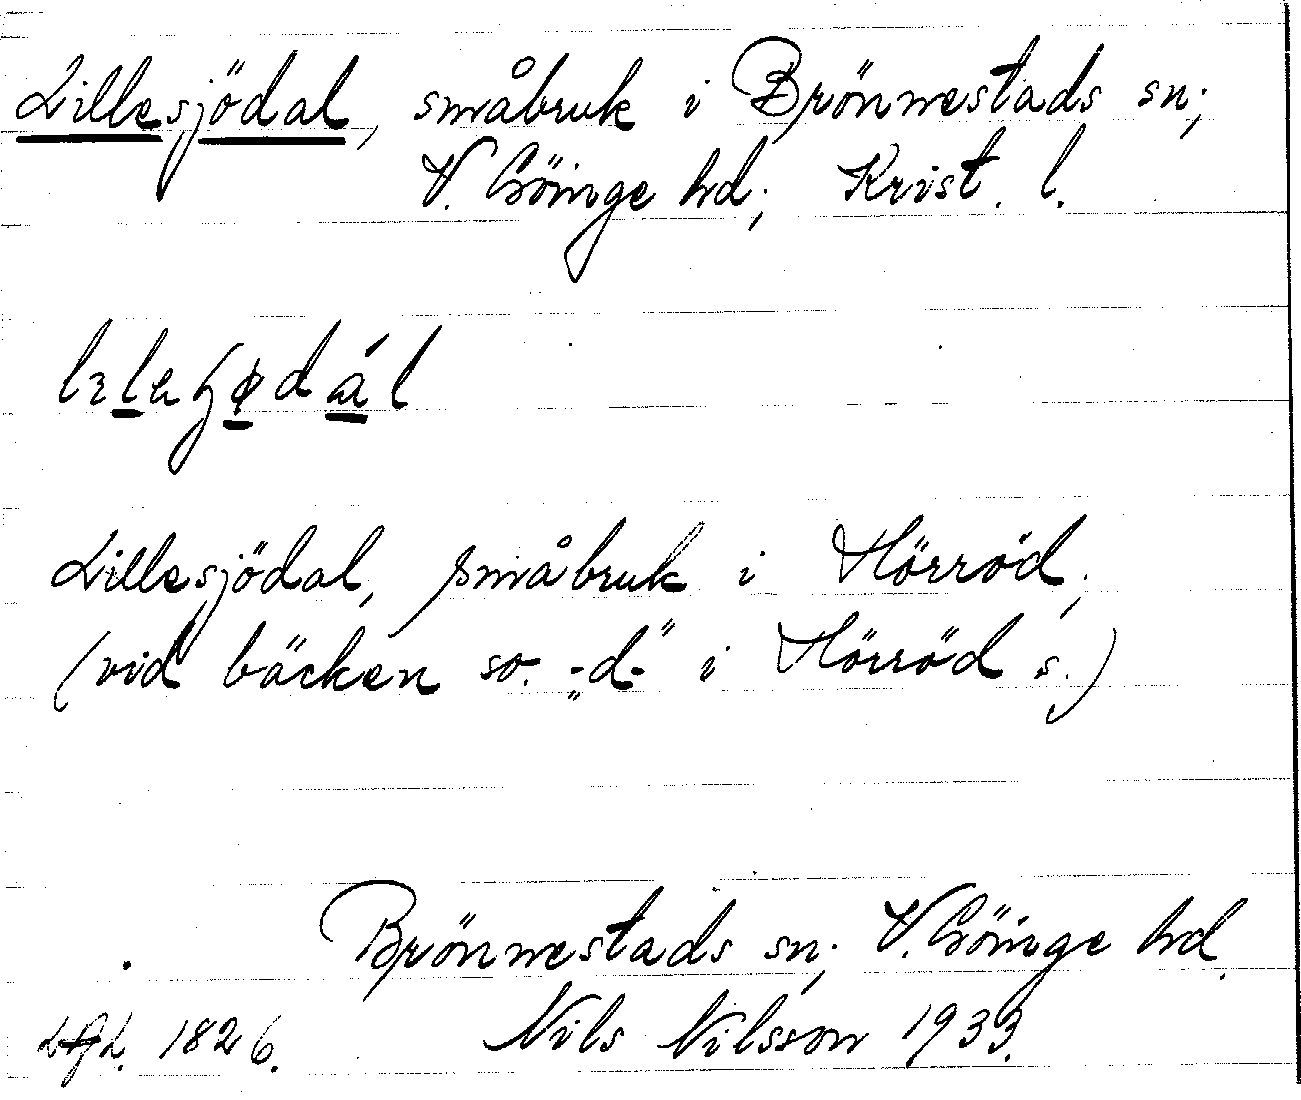 Lillesjödal, småbruk i Brönnestads sn;
V. Göinge hd; Krist. l.
Lillesjödal, småbruk i Hörröd;
(vid bäcken so. „-d-” i Hörröd s.)
Brönnestads sn; V. Göinge hd.
1826. Nils Nilsson 1933.